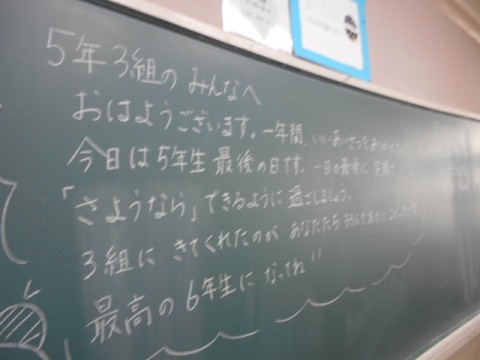 5年3組のみんなへ
おはようございます。一年間、いいあいさつをありがとう。
今日は5年生最後の日です。一日の最後に、笑顔で
「さようなら」できるように過ごしましょう。
3組にきてくれたのがあなたたち
最高の6年生になってね!!